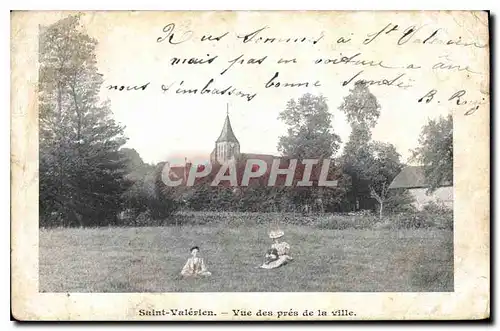 Nous Sommes à St Valerien
mais pas en voiture a âne
nous t'embrassons, bonne Santé
B. Rou
CPARAMA
Saint-Valérien. - Vue des prés de la ville.